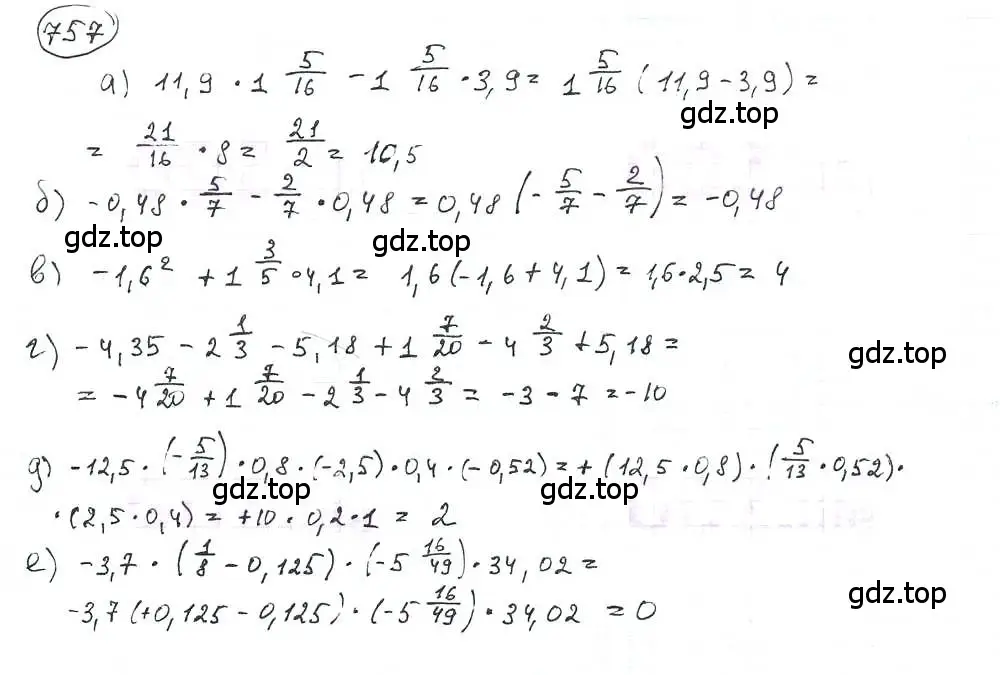 757
а) 11,9 · 1 5/16 − 1 5/16 · 3,9 = 1 5/16 (11,9 − 3,9) =
gdz.top
= 21/16 · 8 = 21/2 = 10,5
б) −0,48 · 5/7 − 2/7 · 0,48 = 0,48 (− 5/7 − 2/7) = −0,48
gdz.top gdz.top
в) −1,6² + 1 3/5 · 4,1 = 1,6 (−1,6 + 4,1) = 1,6 · 2,5 = 4
г) −4,35 − 2 1/3 − 5,18 + 1 7/20 − 4 2/3 + 5,18 =
gdz.top
= −4 7/20 + 1 7/20 − 2 1/3 − 4 2/3 = −3 − 7 = −10
д) −12,5 · (− 5/13) · 0,8 · (−2,5) · 0,4 · (−0,52) = + (12,5 · 0,8) · (5/13 · 0,52) ·
gdz.top gdz.top
· (2,5 · 0,4) = +10 · 0,2 · 1 = 2
е) −3,7 · (1/8 − 0,125) · (−5 16/49) · 34,02 =
gdz.top
−3,7 (+0,125 − 0,125) · (−5 16/49) · 34,02 = 0